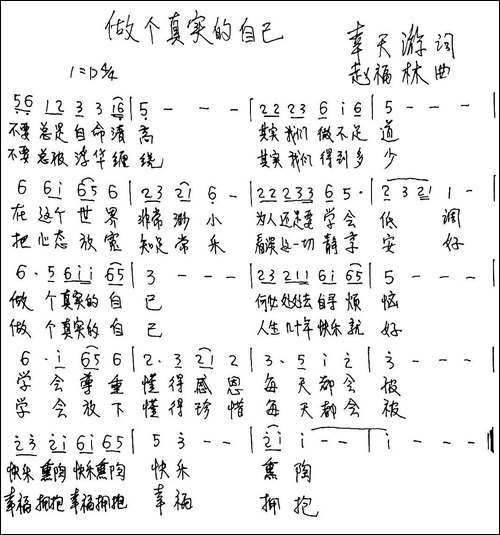 做个真实的自己
幸天游 词
赵福林 曲
1=D 4/4
56 12 3 3 16 | 5 - - - | 22 23 6 i 6 | 5 - - - |
不要总是自命清高 其实我们做不足道
不要总被浮华缠绕 其实我们得到多少
6 6i 65 6 | 23 21 6 - | 22 22 33 6 5· | 2 3 21 1 - |
在这个世界 非常渺小 为人还是要学会低调
把心态放宽 知足常乐 看淡这一切静享安好
6·5 6i i 65 | 3 - - - | 23 21 1 6i 65 | 5 - - - |
做个真实的自己 何必处处去自寻烦恼
做个真实的自己 人生几十年快乐就好
6·i 65 6 | 2·3 21 2 | 3·5 i 2 | 3 - - - |
学会尊重 懂得感恩 每天都会被
学会放下 懂得珍惜 每天都会被
23 2i 6i 65 | 5 3 - - | 2i i - - | i - - - ‖
快乐熏陶快乐熏陶 快乐 熏陶
幸福拥抱幸福拥抱 幸福 拥抱